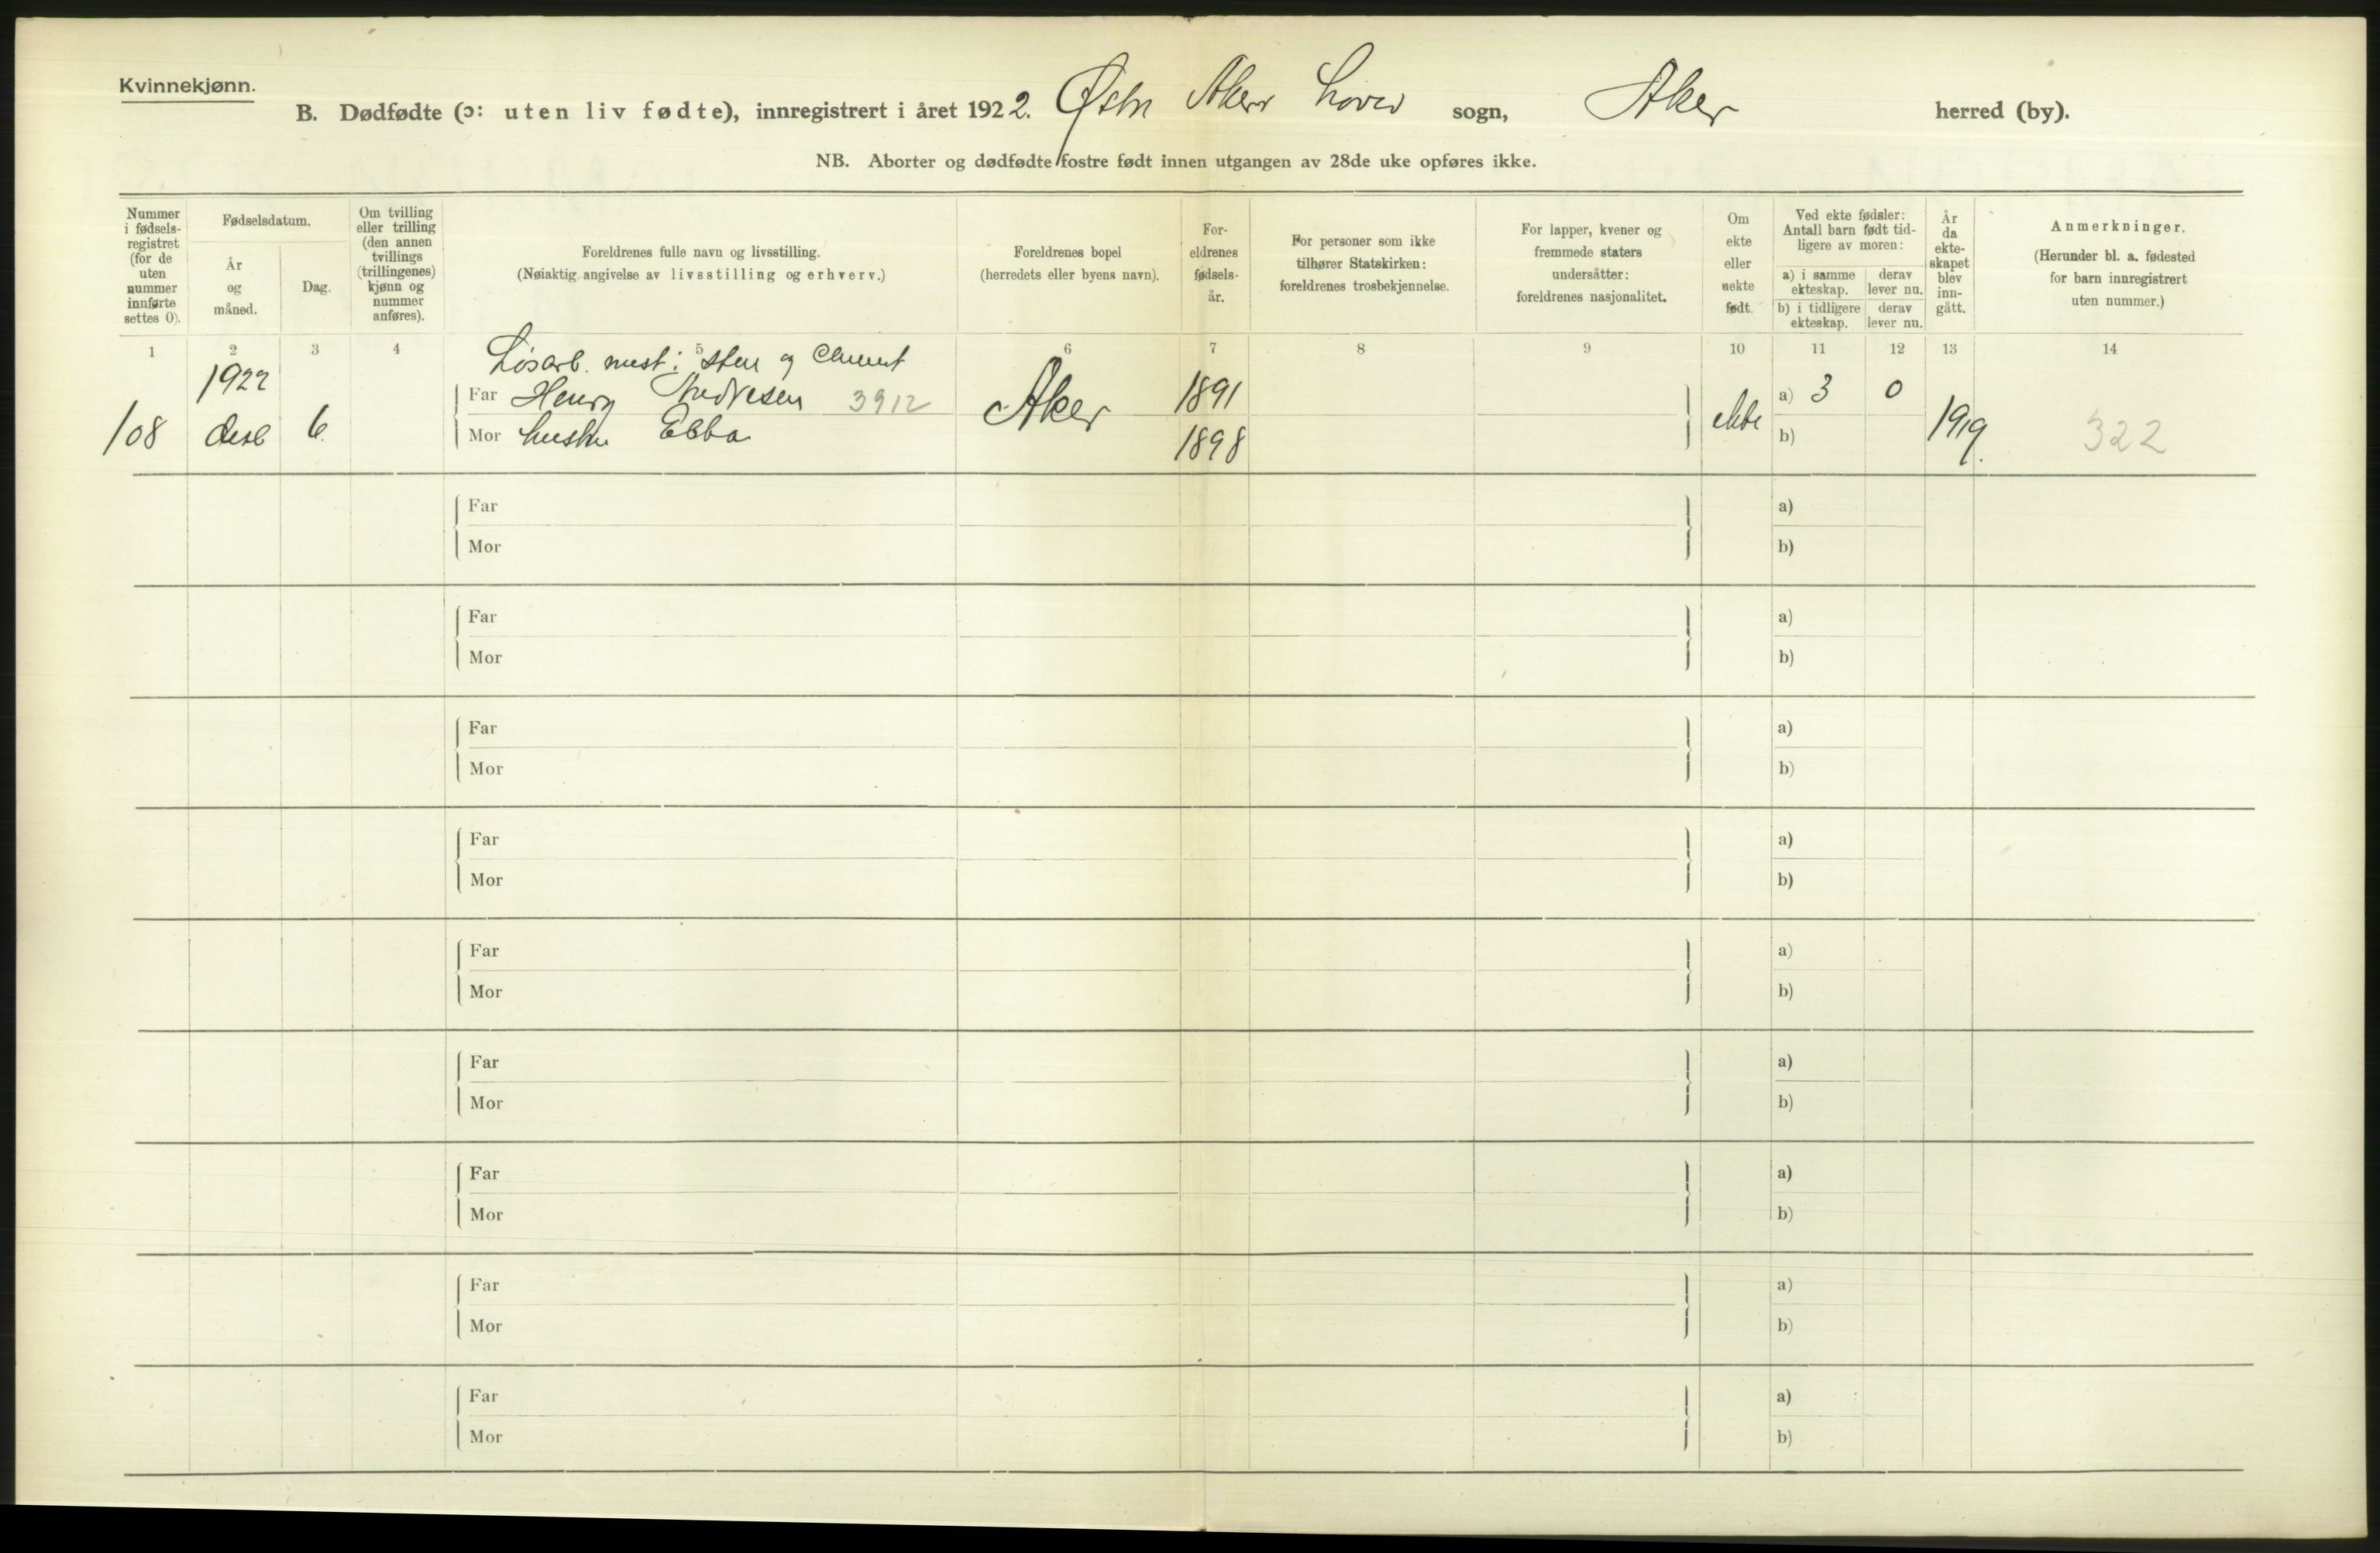 Kvinnekjønn.
B. Dødfødte (ɔ: uten liv fødte), innregistrert i året 1922. Østre Aker hoved sogn, Aker herred (by).
NB. Aborter og dødfødte fostre født innen utgangen av 28de uke opføres ikke.
Nummer i fødsels-registret (for de uten nummer innførte settes 0).
Fødselsdatum.
År og måned.
Dag.
Om tvilling eller trilling (den annen tvillings (trillingenes) kjønn og nummer anføres).
Foreldrenes fulle navn og livsstilling.
(Nøiaktig angivelse av livsstilling og erhverv.)
Foreldrenes bopel
(herredets eller byens navn).
For-eldrenes fødsels-år.
For personer som ikke tilhører Statskirken: foreldrenes trosbekjennelse.
For lapper, kvener og fremmede staters undersåtter: foreldrenes nasjonalitet.
Om ekte eller uekte født.
Ved ekte fødsler: Antall barn født tid-ligere av moren:
a) i samme ekteskap.
derav lever nu.
b) i tidligere ekteskap.
derav lever nu.
År da ekte-skapet blev inn-gått.
Anmerkninger.
(Herunder bl. a. fødested for barn innregistrert uten nummer.)
1 2 3 4 5 6 7 8 9 10 11 12 13 14
Løsarb. mest i sten og Cement
1922
Far Henry Andresen 3912 Aker 1891 a) 3 0
108 desb 6. Mor hustru Ebba 1898 ekte b) 1919. 322
Far a)
Mor b)
Far a)
Mor b)
Far a)
Mor b)
Far a)
Mor b)
Far a)
Mor b)
Far a)
Mor b)
Far a)
Mor b)
Far a)
Mor b)
Far a)
Mor b)